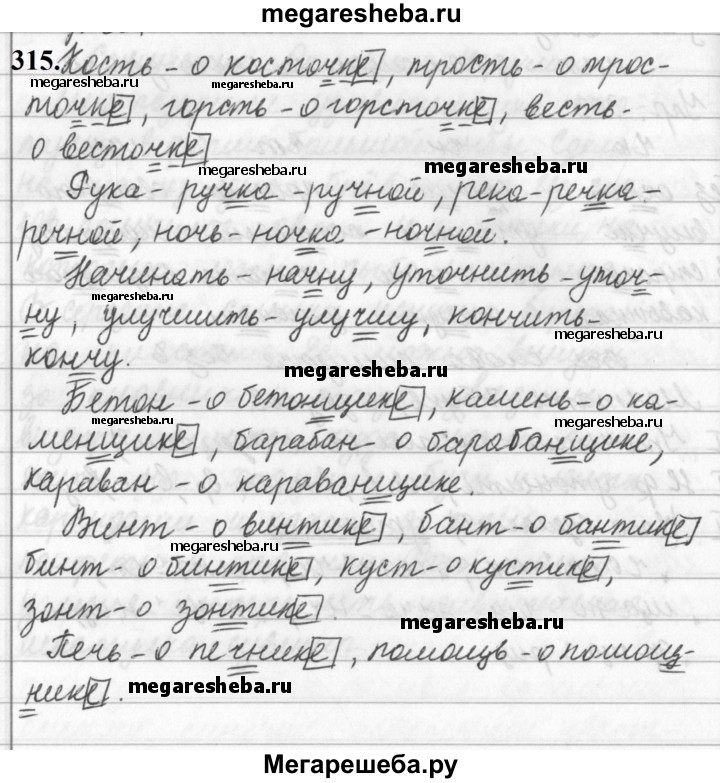 megaresheba.ru
315. Кость - о косточке, трость - о трос-
megaresheba.ru megaresheba.ru
точке, горсть - о горсточке, весть-
о весточке
megaresheba.ru megaresheba.ru
Рука - ручка - ручной, река - речка -
речной, ночь - ночка - ночной.
Начинать - начну, уточнить - уточ-
megaresheba.ru
ну, улучшить - улучшу, кончить-
megaresheba.ru
кончу.
megaresheba.ru
Бетон - о бетонщике, камень - о ка-
megaresheba.ru
менщике, барабан - о барабанщике,
караван - о караванщике.
Винт - о винтике, бант - о бантике
megaresheba.ru
бинт - о бинтике, куст - о кустике,
зонт - о зонтике.
megaresheba.ru
Печь - о печнике, помощь - о помощ-
нике.
megaresheba.ru
Мегарешеба.ру